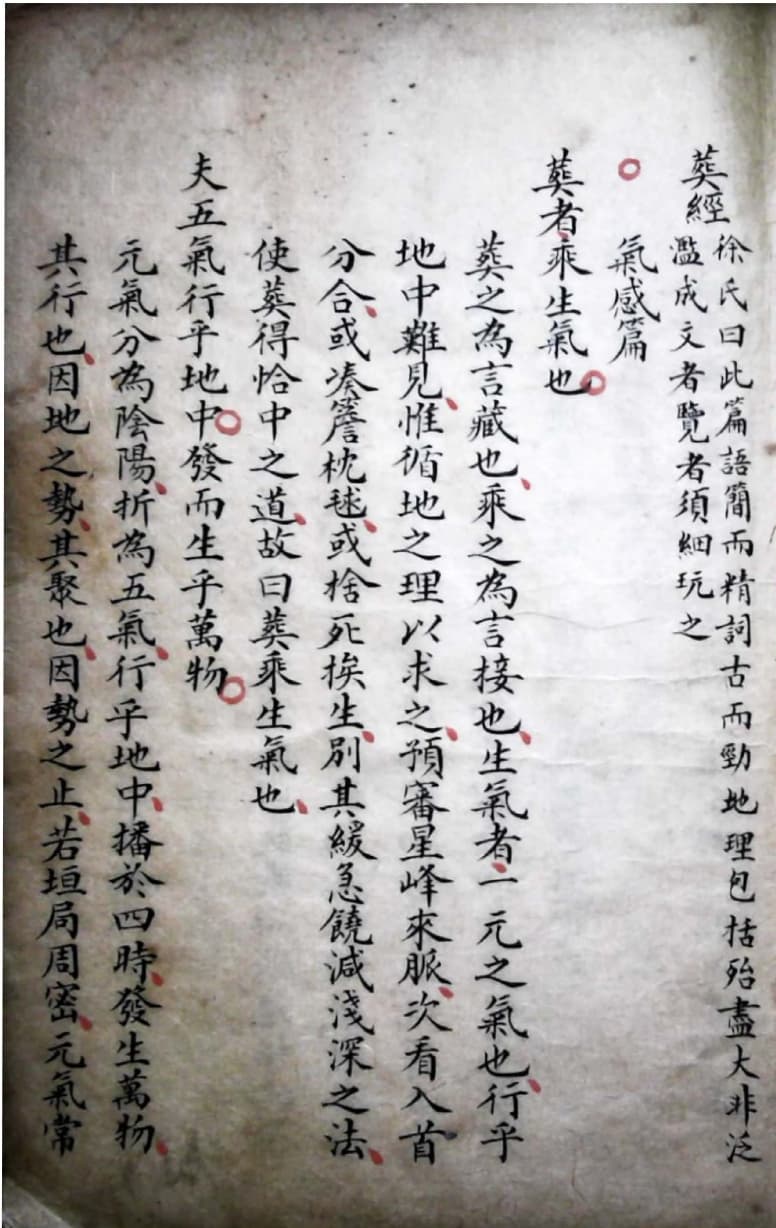 葬經
徐氏曰此篇語簡而精詞古而勁地理包括殆盡大非泛
濫成文者覽者須細玩之
氣感篇
葬者乘生氣也
葬之為言藏也乘之為言接也生氣者一元之氣也行乎
地中難見惟循地之理以求之預審星峰來脈次看入首
分合或湊簷枕毬或捨死挨生別其緩急饒減淺深之法
使葬得恰中之道故曰葬乘生氣也
夫五氣行乎地中發而生乎萬物
元氣分為陰陽折為五氣行乎地中播於四時發生萬物
其行也因地之勢其聚也因勢之止若垣局周密元氣常